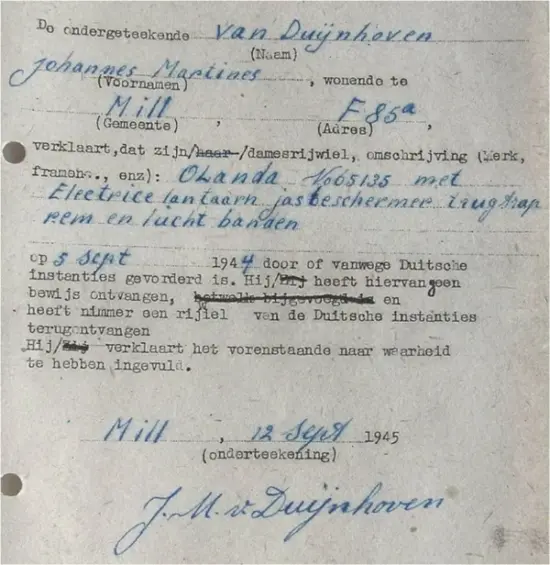 De ondergeteekende van Duijnhoven
(Naam)
Johannes Martines, wonende te
(Voornamen)
Mill, F 85a,
(Gemeente) (Adres)
verklaart, dat zijn/haar/damesrijwiel, omschrijving (Merk,
framno., enz): Olanda No65135 met
Electrice lantaarn jasbeschermer trugtrap
rem en lucht banden
op 5 Sept 1944 door of vanwege Duitsche
instanties gevorderd is. Hij/Zij heeft hiervan geen
bewijs ontvangen, hetwelk bijgevoegd is en
heeft nimmer een rijiel van de Duitsche instanties
terugontvangen
Hij/Zij verklaart het vorenstaande naar waarheid
te hebben ingevuld.
Mill, 12 Sept 1945
(onderteekening)
J. M. v. Duijnhoven